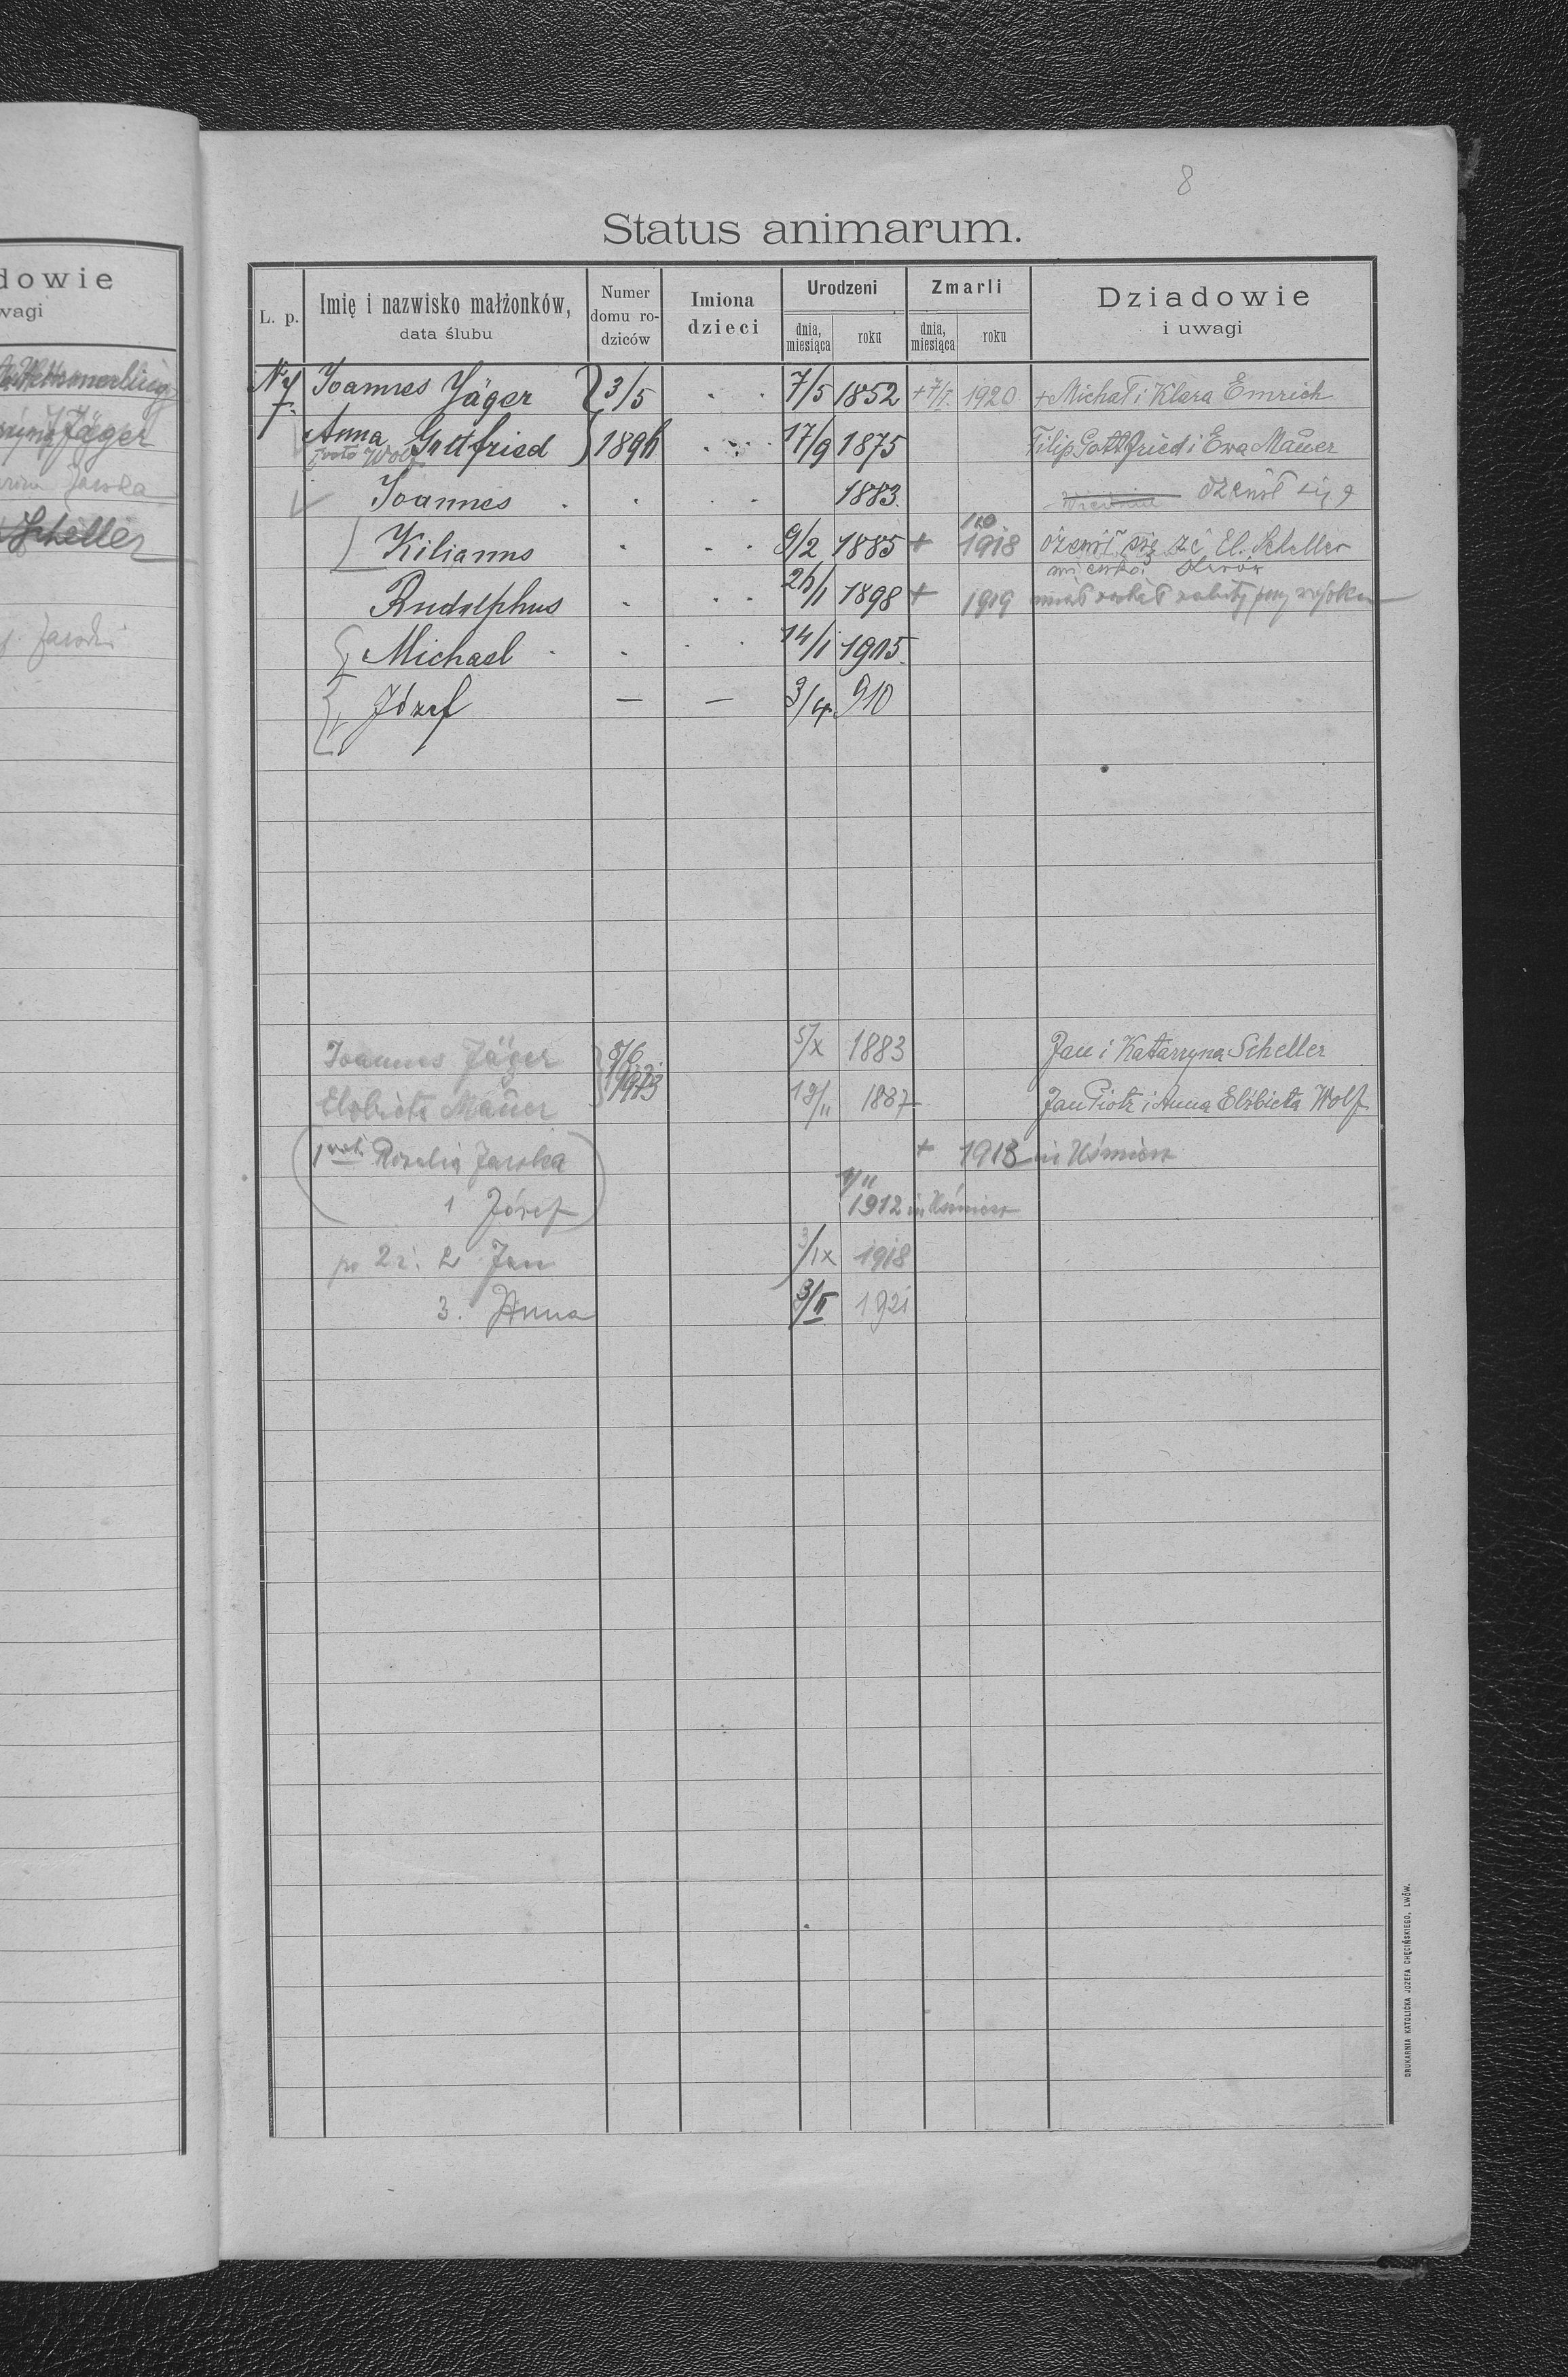 8
Status animarum.
dowie
wagi
Jäger
Jaroka
Scheller
L. p.
Imię i nazwisko małżonków,
data ślubu
Numer
domu ro-
dziców
Imiona
dzieci
Urodzeni
dnia,
miesiąca
roku
Zmarli
dnia,
miesiąca
roku
Dziadowie
i uwagi
N 7 Joannes Jäger 3/5 7/5 1852 + 7/I. 1920 + Michał i Klara Emrich
Anna Gottfried 1896 17/9 1875 Filip Gottfried i Ewa Mauer
voto Wolf
Joannes 1883. ożenił się
Kilianus 9/2 1885 + 1918 ożenił się ze El. Scheller
Rudolphus 26/1 1898 + 1919 został zabity przy wojsku
Michael 14/1 1905.
Józef — — 3/4. 910
Joannes Jäger 5/6 5/X 1883 Jan i Katarzyna Scheller
Elżbieta Mauer 1923 19/11 1887 Jan Piotr i Anna Elżbieta Wolf
(1 voto Rozalia Jaroka + 1913 in Uśmierz
1 Józef) 1/11 1912 in Uśmierz
po 2 ż. 2 Jan 3/IX 1918
3. Anna 3/II 1921
DRUKARNIA KATOLICKA JOZEFA CHĘCIŃSKIEGO, LWÓW.